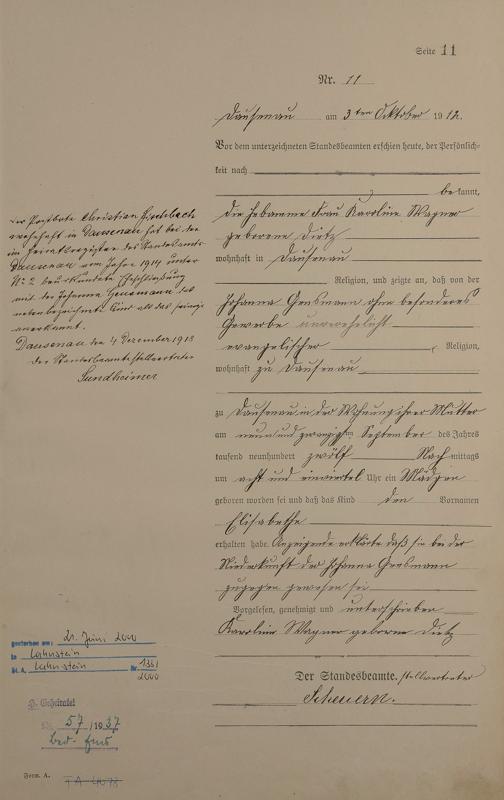 Seite 11
Nr. 11
Dausenau am 3ten Oktober 1912.
Vor dem unterzeichneten Standesbeamten erschien heute, der Persönlich-
keit nach
bekannt,
die Hebamme Frau Karoline Wagner
geborene Dietz
wohnhaft in Dausenau
Religion, und zeigte an, daß von der
Johanna Gensmann ohne besonderes
Gewerbe unverehelicht
evangelischer Religion,
wohnhaft zu Dausenau
zu Dausenau in der Wohnung ihrer Mutter
am neunundzwanzigsten September des Jahres
tausend neunhundert zwölf Nachmittags
um acht und einviertel Uhr ein Mädchen
geboren worden sei und daß das Kind den Vornamen
Elisabethe
erhalten habe. Anzeigende erklärte daß sie bei der
Niederkunft der Johanna Gensmann
zugegen gewesen sei
Vorgelesen, genehmigt und unterschrieben
Karoline Wagner geborene Dietz
Der Standesbeamte. stellvertreter
Scheuern.
Der Postbote Christian
wohnhaft in Dausenau hat bei der
im Heiratsregister des Standesamts
Dausenau vom Jahre 1914 unter
No 2 beurkundeten Eheschließung
mit der Johanna Gensmann das
nebenbezeichnete Kind als das seinige
anerkannt.
Dausenau den 4 Dezember 1918
Der Standesbeamte stellvertreter
Sundheimer
gestorben am: 21. Juni 2000
in Lahnstein
St. A. Lahnstein Nr. 136/
2000
Geheiratet
Nr. 57/1937
Bad-Ems
Form. A.